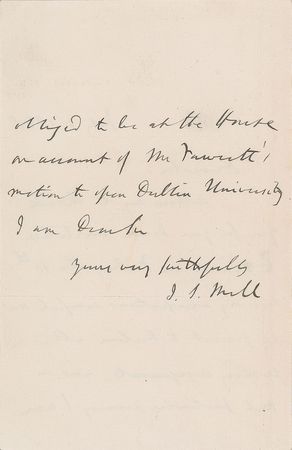 obliged to be at the House
on account of Mr Fawcett's
motion to open Dublin University
I am Dear Sir
yours very faithfully
J. S. Mill